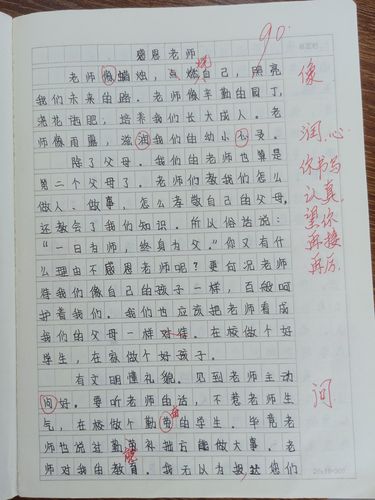 感恩老师
90.
老师像蜡烛,点燃自己,照亮
我们未来的路。老师像辛勤的园丁,
浇花施肥,培养我们长大成人。老
师像雨露,滋润我们的幼小心灵。
除了父母。我们的老师也算是
第二个父母了。老师们教我们怎么
做人、做事,怎么孝敬自己的父母,
还教会了我们知识。所以俗话说:
“一日为师,终身为父。”你又有什
么理由不感恩老师呢?更何况老师
待我们像自己的孩子一样,百般呵
护着我们。我们也应该把老师看成
我们的父母一样对待。在校做个好
学生,在家做个好孩子。
有文明懂礼貌。见到老师主动
问好。要听老师的话,不惹老师生
气,在校做个勤奋的学生。毕竟老
师也说过勤能补拙方能做大事。老
师对我由教育。我无以为报达您们
像
润,心
你书写
认真,
望你
再接
再厉.
问